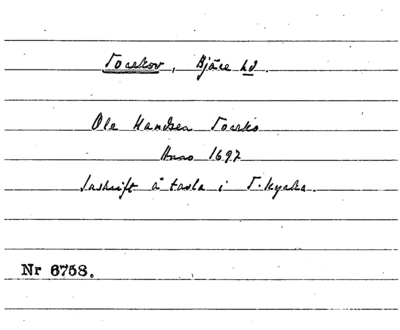 Torekov, Bjäre hd.
Ole Handsen Torko
Anno 1697
Inskrift å tavla i T. kyrka.
Nr 6758.